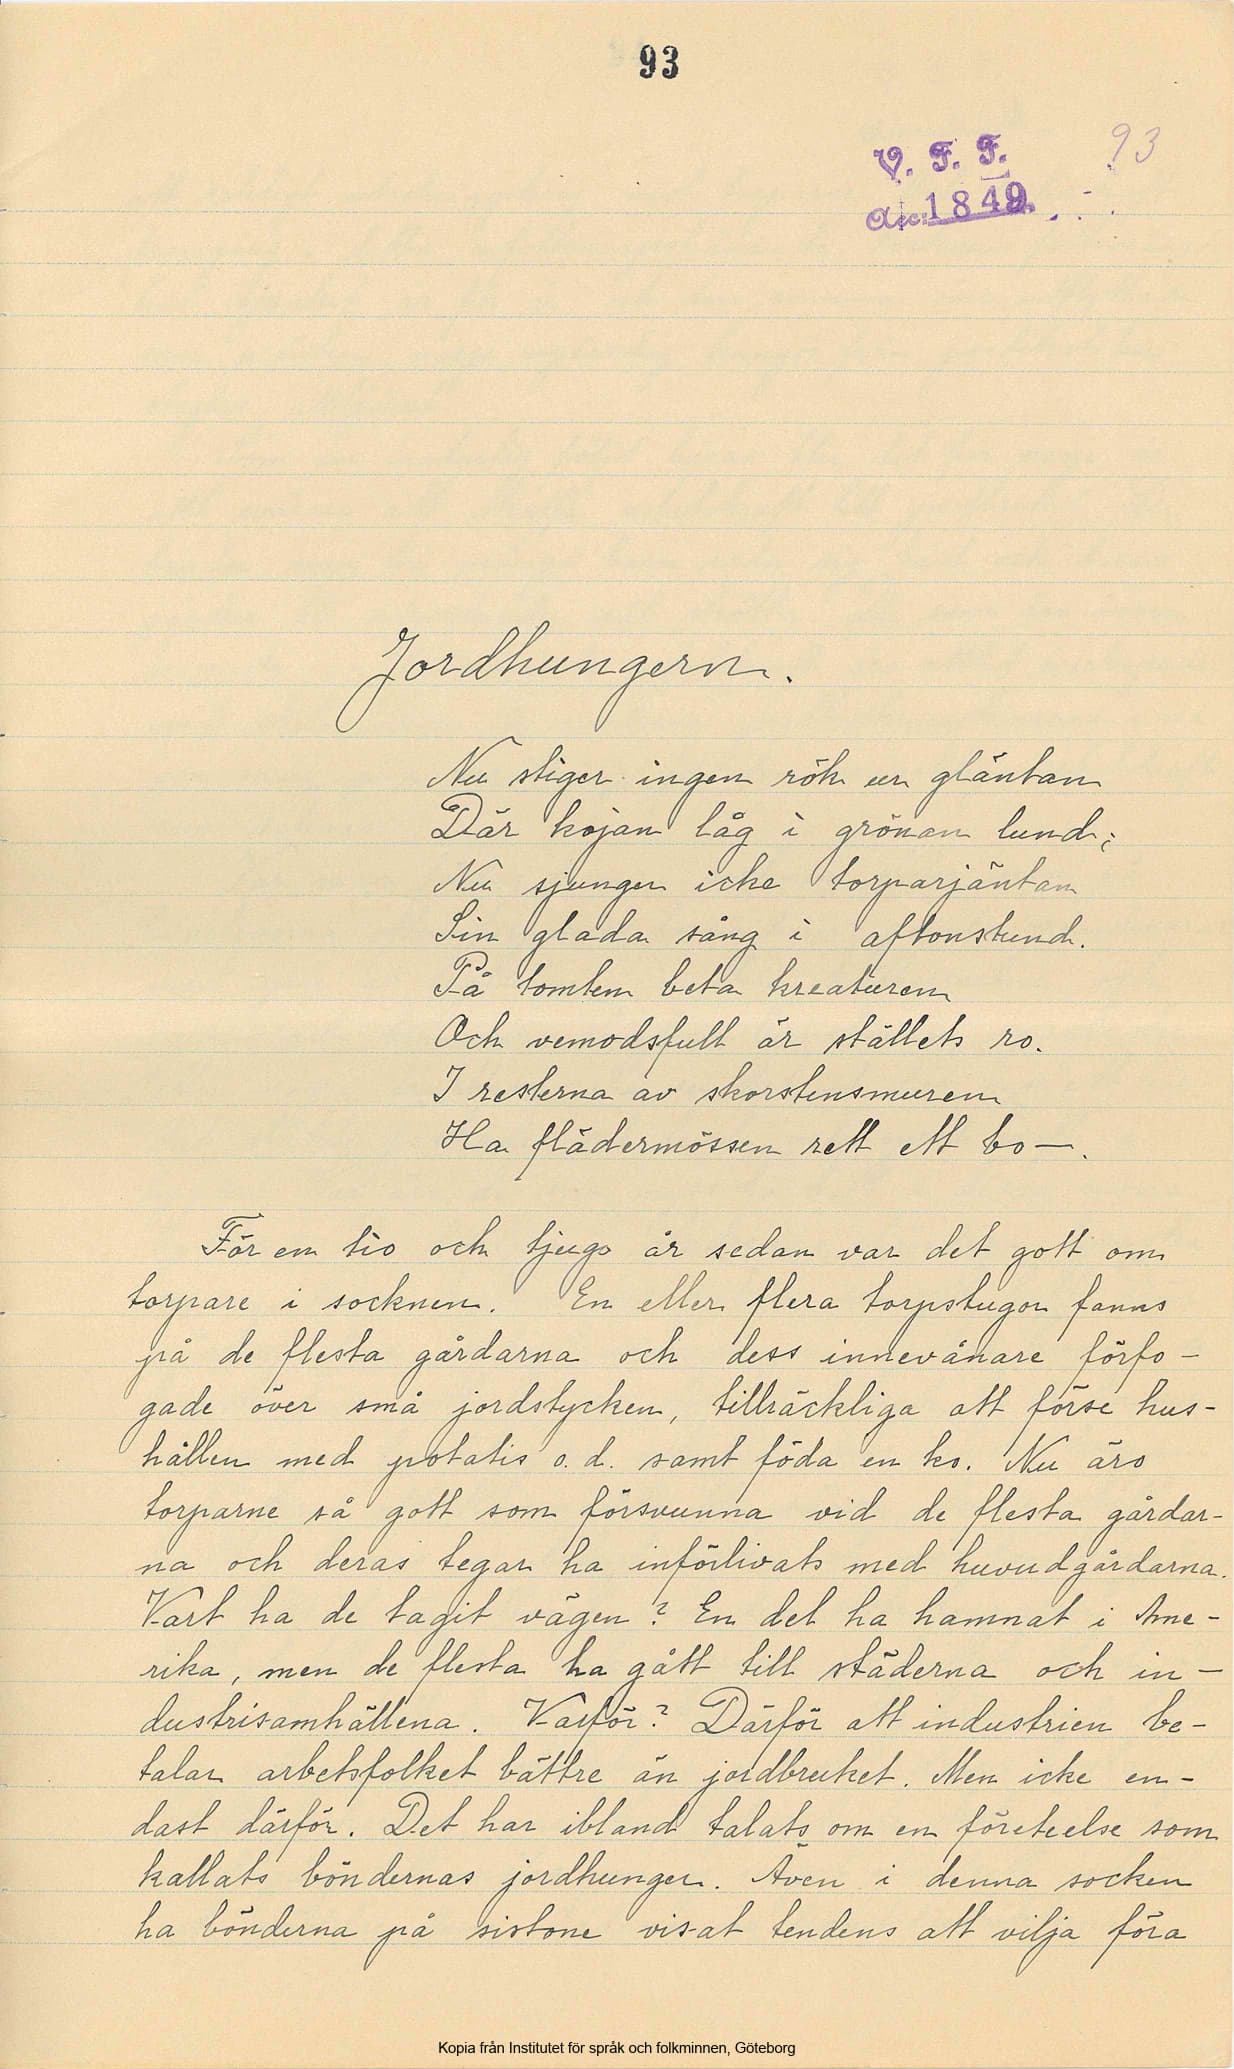 93
93
V. F. F.
Acc: 1849
Jordhungern.
Nu stiger ingen rök ur gläntan
Där kojan låg i grönan lund;
Nu sjunger icke torparjäntan
Sin glada sång i aftonstund.
På tomten beta kreaturen
Och vemodsfullt är ställets ro.
I resterna av skorstensmuren
Ha flädermössen rett ett bo—.
För en tio och tjugo år sedan var det gott om
torpare i socknen. En eller flera torpstugor fanns
på de flesta gårdarna och dess innevånare förfo-
gade över små jordstycken, tillräckliga att förse hus-
hållen med potatis o.d. samt föda en ko. Nu äro
torparne så gott som försvunna vid de flesta gårdar-
na och deras tegar ha införlivats med huvudgårdarna.
Vart ha de tagit vägen? En del ha hamnat i Ame-
rika, men de flesta ha gått till städerna och in-
dustrisamhällena. Varför? Därför att industrien be-
talar arbetsfolket bättre än jordbruket. Men icke en-
dast därför. Det har ibland talats om en företeelse som
kallats böndernas jordhunger. Även i denna socken
ha bönderna på sistone visat tendens att vilja föra
Kopia från Institutet för språk och folkminnen, Göteborg